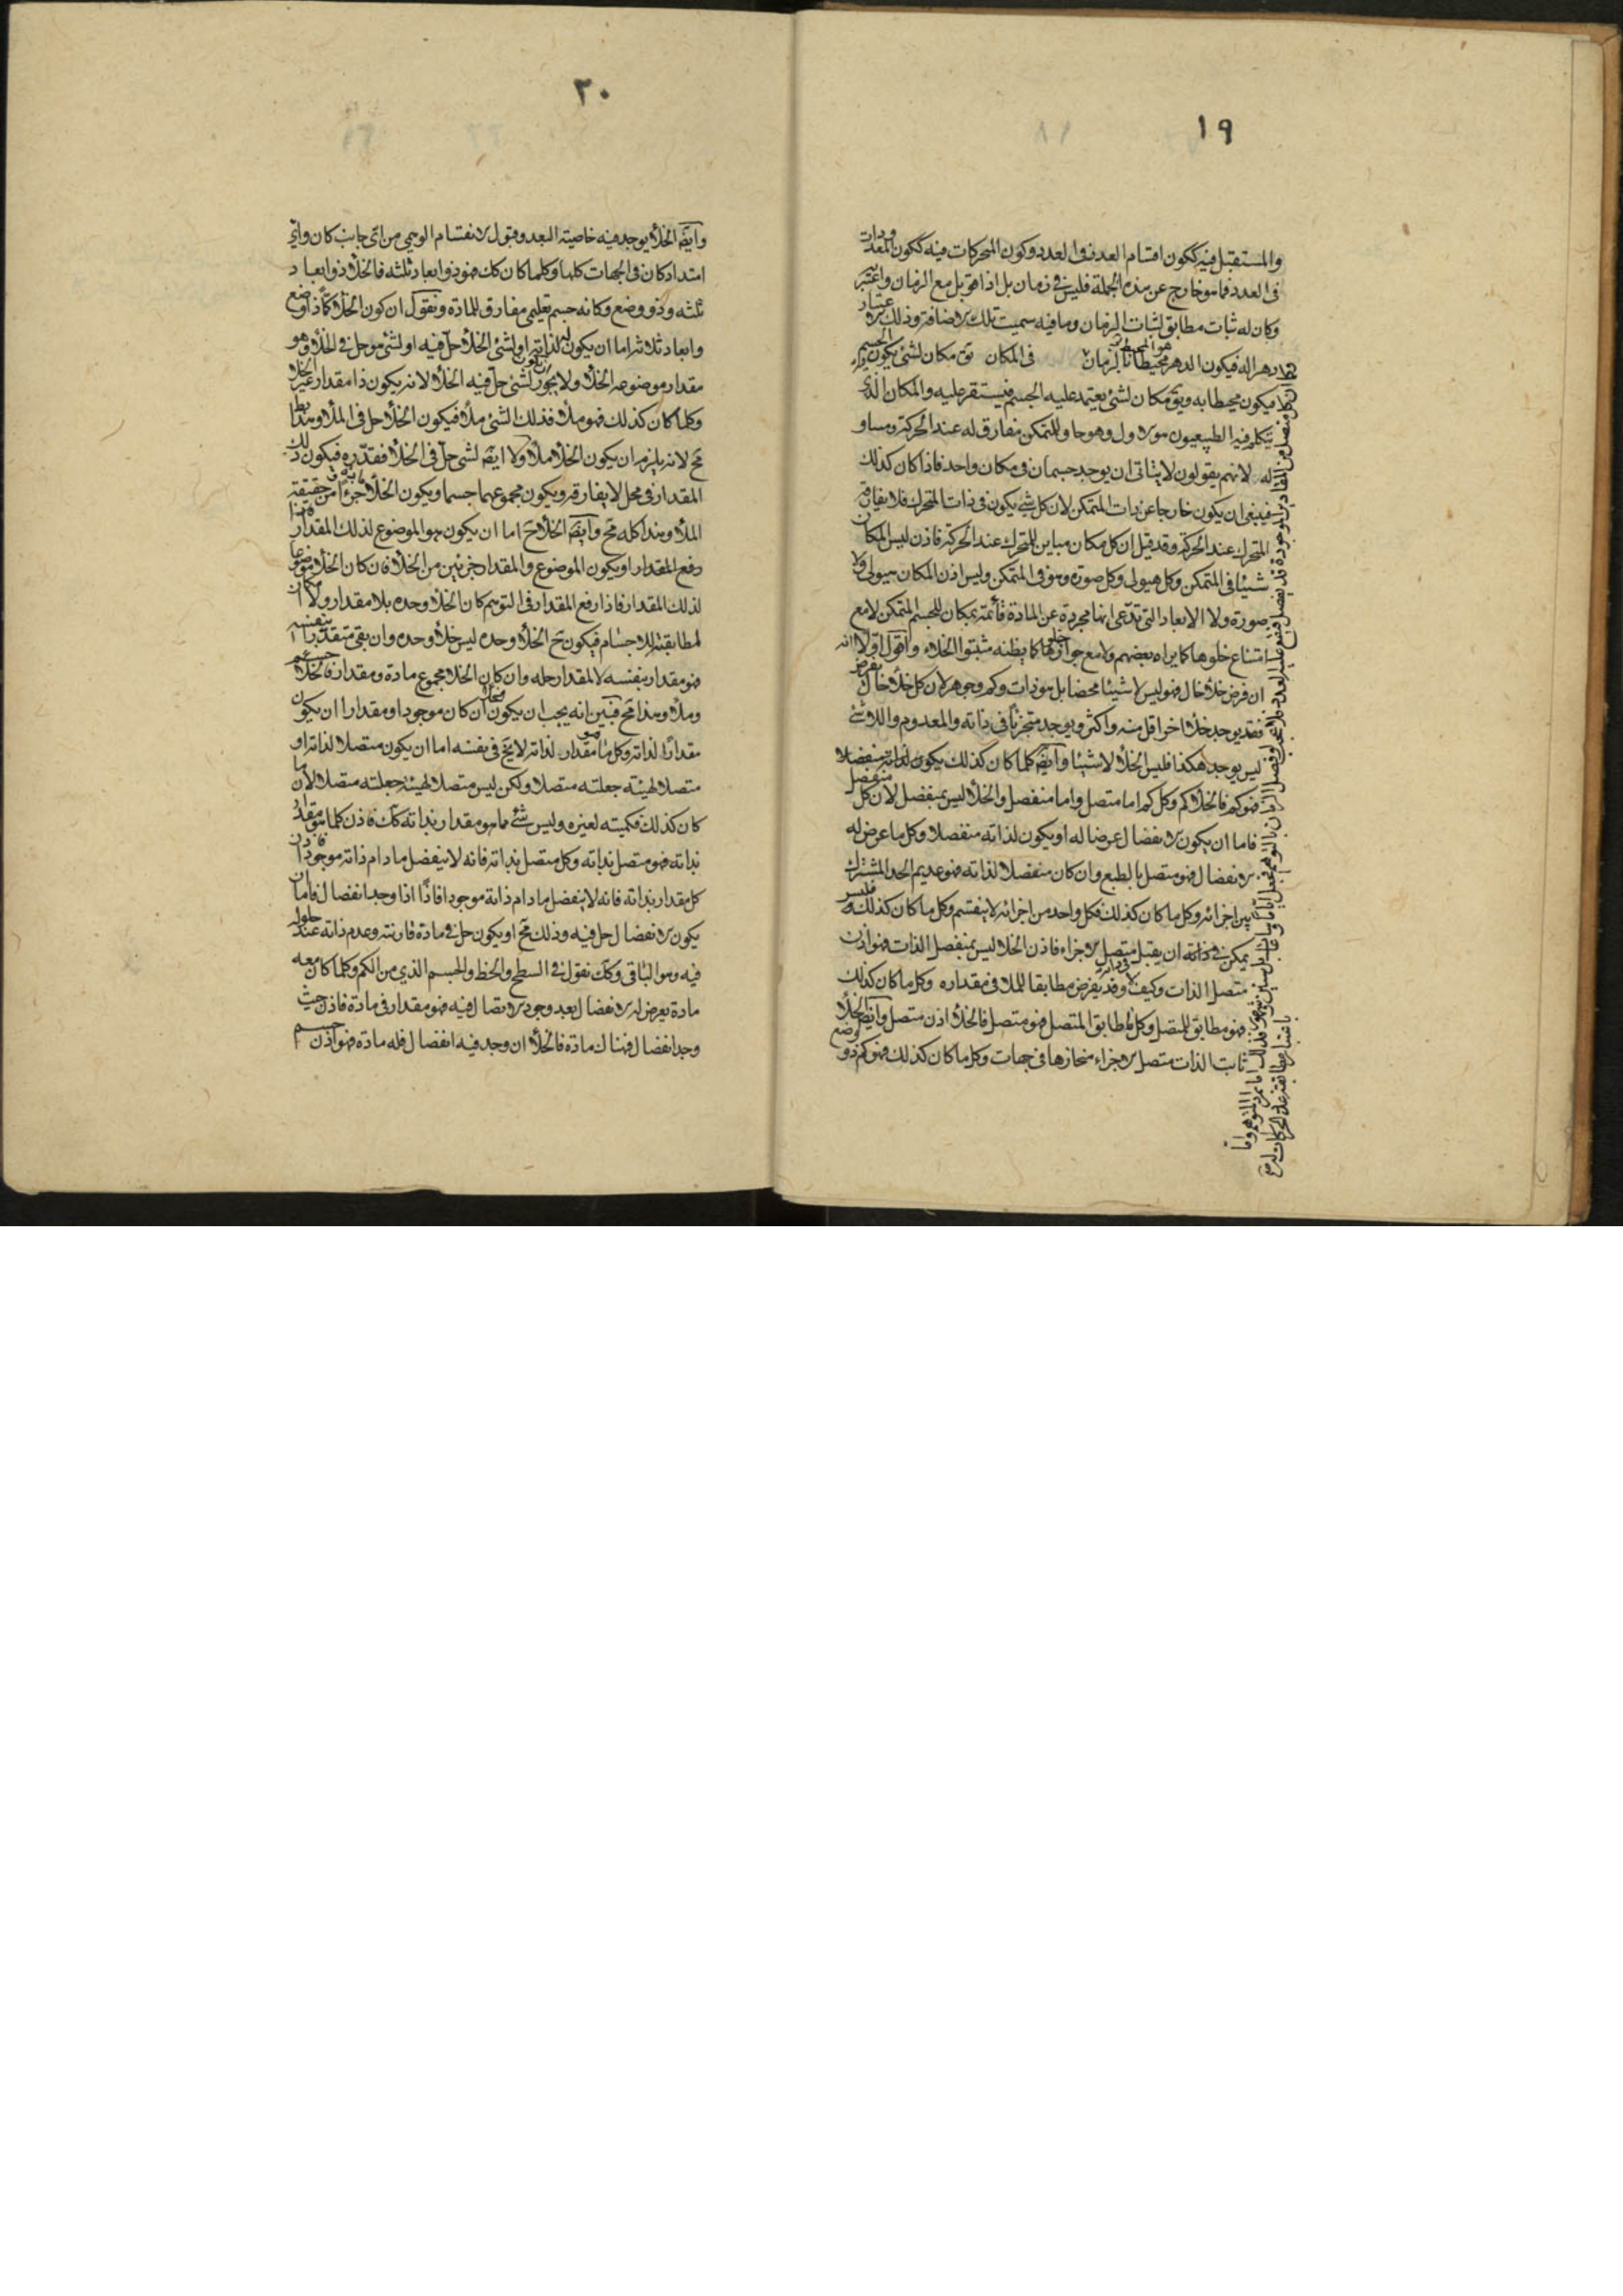 ١٩
والمستقبل فيه ككون اقسام العدد فى العدد وكون المتحركات فيه ككون المعدودات
فى العدد فما هو خارج عن هذه الجملة فليس فى زمان بل اذا قوبل مع الزمان واعتبر به
وكان له ثبات مطابق لثبات الزمان وما فيه سميت تلك الاضافة وذلك الاعتبار
دهرا له فيكون الدهر هو المحيط بالزمان فى المكان يق مكان لشئ يكون فيه الجسم
فيكون محيطا به ويق مكان لشئ يعتمد عليه الجسم فيستقر عليه والمكان الذى
يتكلم فيه الطبيعيون هو الاول وهو حاو للمتمكن مفارق له عند الحركة ومساو
له لانهم يقولون لا يتاتى ان يوجد جسمان فى مكان واحد فاذا كان كذلك
فينبغى ان يكون خارجا عن ذات المتمكن لان كل شئ يكون فى ذات المتحرك فلا يفارقه
المتحرك عند الحركة وقد قيل ان كل مكان مباين للمتحرك عند الحركة فاذن ليس المكان
شيئا فى المتمكن وكل هيولى وكل صورة وهو فى المتمكن وليس اذن المكان هيولى ولا
صورة ولا الابعاد التى تدعى انها مجردة عن المادة قائمة بمكان للجسم المتمكن لا مع
امتناع خلوها كما يراه بعضهم ولا مع جواز خلوها كما يظنه مثبتوا الخلاء واقول اولا انه
ان فرض خلأ خال فهو ليس لا شيئا محضا بل هو ذات وكم وجوهر لان كل خلأ خال يفرض
فقد يوجد خلأ اخر اقل منه واكثر ويوجد متجزئا فى ذاته والمعدوم واللاشئ
ليس يوجد هكذا فليس الخلأ لا شيئا وايضا كلما كان كذلك
فهو كم فالخلأ كم وكل كم اما متصل واما منفصل والخلأ ليس بمنفصل لان كل منفصل
فاما ان يكون الانفصال عرضا له او يكون لذاته منفصلا وكل ما عرض له
الانفصال فهو متصل بالطبع وان كان منفصلا لذاته فهو عديم الحد المشترك
بين اجزائه وكل ما كان كذلك فكل واحد من اجزائه لا ينقسم وكل ما كان كذلك فليس
يمكن فى ذاته ان يقبل متصل الاجزاء فاذن الخلا ليس بمنفصل الذات فهو اذن
متصل الذات وكيف لا وقد يفرض مطابقا للملا فى مقداره وكل ما كان كذلك
فهو مطابق للمتصل وكل مطابق المتصل فهو متصل فالخلأ اذن متصل وايضا الخلأ
ثابت الذات متصل الاجزاء منحازها فى جهات وكل ما كان كذلك فهو كم ذو وضع
٢٠
وايضا الخلأ يوجد فيه خاصية البعد وقبول الانقسام الوهمى من اى جانب كان واى
امتداد كان فى الجهات كلها وكلما كان كك فهو ذو ابعاد ثلثه فالخلأ ذو ابعاد
ثلثه وذو وضع وكانه جسم تعليمى مفارق للمادة ونقول ان كون الخلأ كما ذا وضع
وابعاد ثلاثه اما ان يكون له لذاته او لشئ الخلأ حل فيه او لشئ هو حل فى الخلأ وهو
مقدار موضوعه الخلأ ولا يجوز لشئ حل فيه الخلأ لانه يكون ذا مقدار غير الخلا
وكلما كان كذلك فهو ملأ فذلك الشئ ملأ فيكون الخلأ حل فى الملأ وهذا
مح لانه يلزم ان يكون الخلأ ملأ ولا ايضا لشئ حل فى الخلأ فقدره فيكون ذلك
المقدار فى محل لا يفارقه ويكون مجموعهما جسما ويكون الخلأ جزءا من حقيقة
الملأ وهذا كله مح وايضا الخلأ ح اما ان يكون هو الموضوع لذلك المقدار
رفع المقدار او يكون الموضوع والمقدار جزئين من الخلأ فان كان الخلأ موضوعا
لذلك المقدار فاذا رفع المقدار فى التوهم كان الخلأ وحده بلا مقدار ولا
لمطابقته للاجسام فيكون ح الخلأ وحده ليس خلأ وحده وان بقى متقدرا بنفسه
فهو مقدار بنفسه لا لمقدار حله وان كان الخلا مجموع مادة ومقدار فالخلأ جسم
وملأ وهذا مح فبين انه يجب ان يكون الخلأ ان كان موجودا ومقدارا ان يكون
مقدارا لذاته وكل ما هو مقدار لذاته لا يخ فى نفسه اما ان يكون متصلا لذاته او
متصلا لهيئة جعلته متصلا ولكن ليس متصلا لهيئة جعلته متصلا لان ما
كان كذلك فكميته لغيره وليس شئ مما هو مقدار بذاته كك فاذن كلما هو مقدار
بذاته فهو متصل بذاته وكل متصل بذاته فانه لا ينفصل ما دام ذاته موجودا فاذن
كل مقدار بذاته فانه لا ينفصل ما دام ذاته موجودا فاذا اذا وجد انفصال فاما ان
يكون الانفصال حل فيه وذلك مح او يكون حل فى مادة قارنته وعدم ذاته عند حلوله
فيه وهو الباقى وكك نقول فى السطح والخط والجسم الذى من الكم وكلما كان معه
مادة يعرض له الانفصال بعد وجود الاتصال فيه فهو مقدار فى مادة فاذن حيث
وجد انفصال فهناك مادة فالخلأ ان وجد فيه انفصال فله مادة فهو اذن جسم